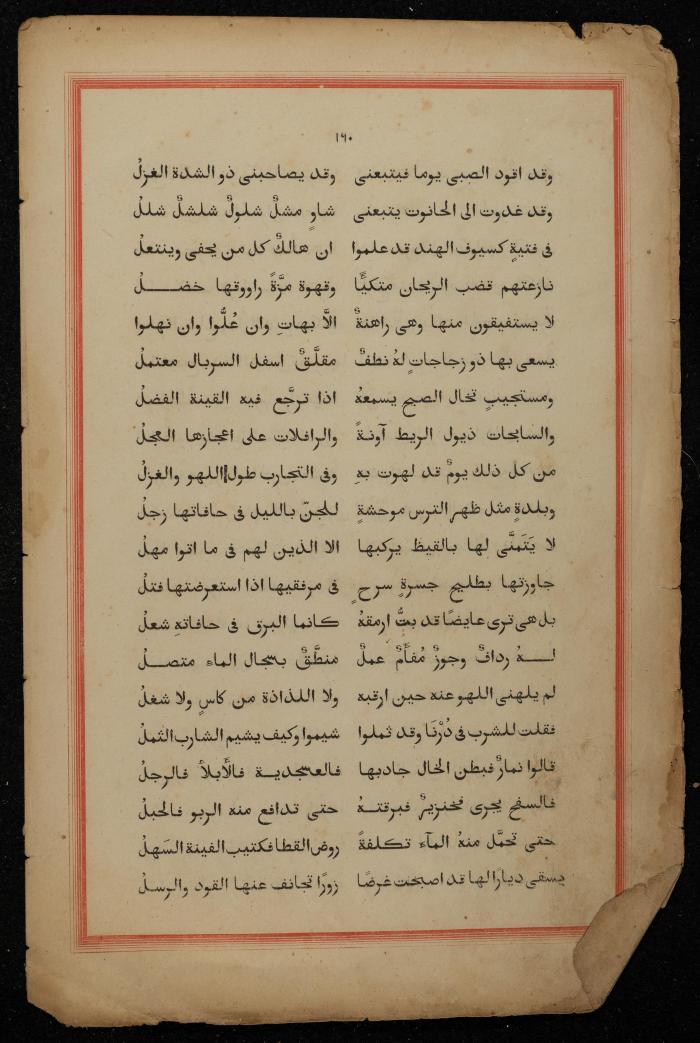 ١٦٠
وقد اقود الصبى يوما فيتبعنى وقد يصاحبنى ذو الشدة الغزلُ
وقد غدوت الى الحانوت يتبعنى شاوٍ مشلٌّ شلولٌ شلشلٌ شللُ
فى فتيةٍ كسيوف الهند قد علموا ان هالكٌ كل من يحفى وينتعلُ
نازعتهم قضب الريحان متكيًّا وقهوة مزَّةً راووقها خضــلُ
لا يستفيقون منها وهى راهنةٌ الَّا بهاتِ وان عُلُّوا وان نهلوا
يسعى بها ذو زجاجاتٍ لهُ نطفٌ مقلَّصٌ اسفل السربال معتملُ
ومستجيبٍ تخال الصبح يسمعهُ اذا ترجَّع فيه القينة الفضلُ
والسابحات ذيول الريط آونةً والرافلات على اعجازها العجلُ
من كل ذلك يومٌ قد لهوت بهِ وفى التجارب طول اللهو والغزلُ
وبلدةٍ مثل ظهر الترس موحشةٍ للجنّ بالليل فى حافاتها زجلُ
لا يَتَمنَّى لها بالقيظ يركبها الا الذين لهم فى ما اتوا مهلُ
جاوزتها بطليح جسرةٍ سرحٍ فى مرفقيها اذا استعرضتها فتلُ
بل هى ترى عايضًا قد بتُّ ارمقهُ كانما البرق فى حافاتهِ شعلُ
لــهُ ردافٌ وجوزٌ مُفأَمٌ عملٌ منطَّقٌ بسجال الماء متصــلُ
لم يلهنى اللهو عنه حين ارقبه ولا اللذاذة من كاسٍ ولا شغلُ
فقلت للشرب فى دُرْنَا وقد ثملوا شيموا وكيف يشيم الشارب الثملُ
قالوا نمارٌ فبطن الخال جادبها فالعسجديــة فالأبلأ فالرجلُ
فالسفح يجرى فخنزيرٌ فبرقتــهُ حتى تدافع منه الربو فالحبلُ
حتى تحمَّل منهُ المآء تكلفةً روض القطا فكثيب الفينة السَهلُ
يسقى ديارا لها قد اصبحت غرضًا زورًا تجانف عنها القود والرسلُ